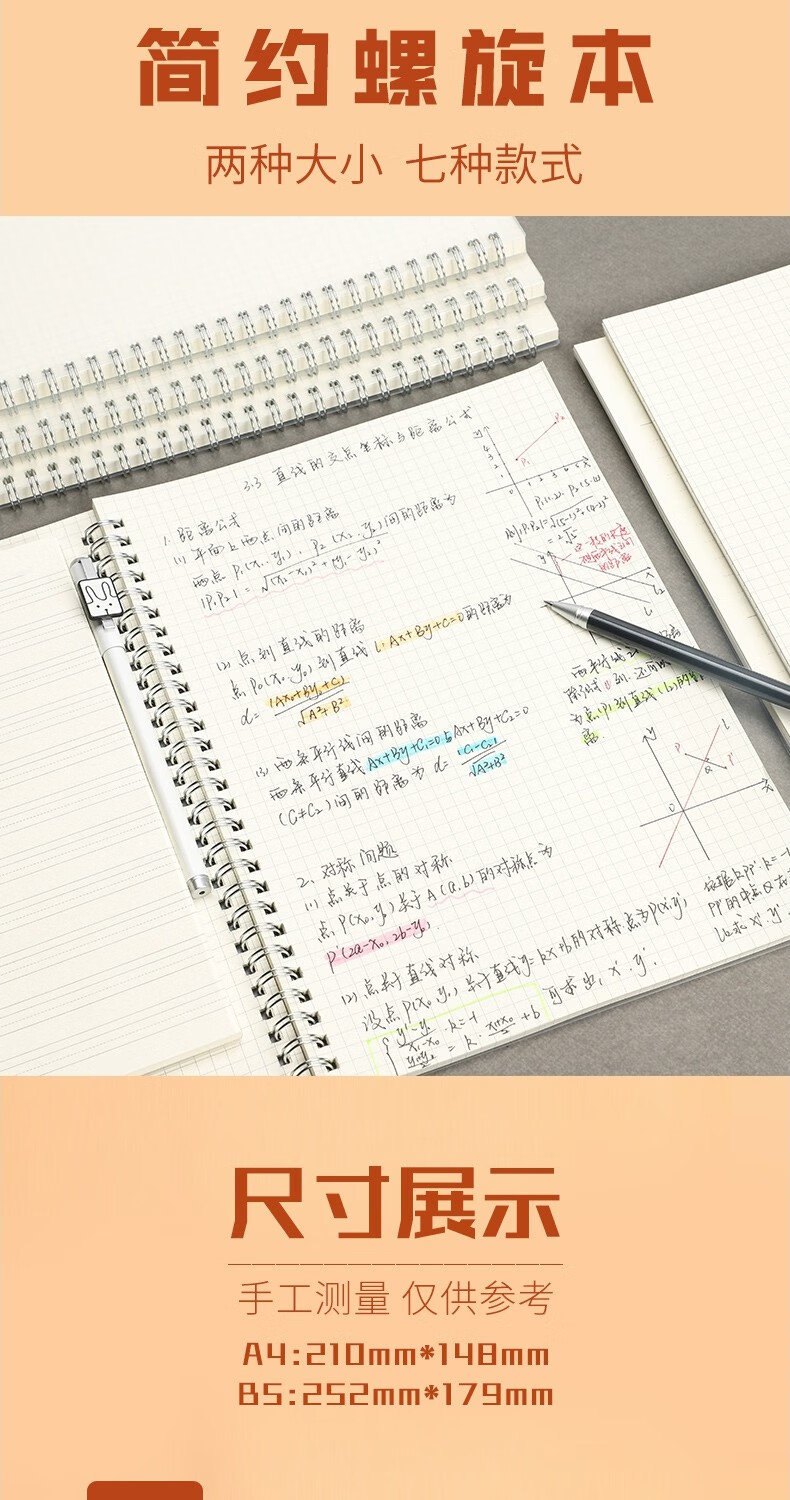 简约螺旋本
两种大小 七种款式
3.3 直线的交点坐标与距离公式
1. 距离公式
(1) 平面上两点间的距离
两点 P₁(x₁, y₁), P₂(x₂, y₂)间的距离为
|P₁P₂| = √(x₁-x₂)²+(y₁-y₂)²
(2) 点到直线的距离
点P₀(x₀, y₀)到直线 l: Ax+By+C=0的距离为
d= |Ax₀+By₀+C| / √A²+B²
(3) 两条平行线间的距离
两条平行直线Ax+By+C₁=0与Ax+By+C₂=0
(C₁≠C₂)间的距离为 d= |C₁-C₂| / √A²+B²
2. 对称问题
(1) 点关于点的对称
点 P(x₀, y₀)关于A(a,b)的对称点为
P'(2a-x₀, 2b-y₀)
(2) 点关于直线对称
设点P(x₀, y₀)关于直线y=kx+b的对称点为P'(x', y')
可求出, x', y'.
尺寸展示
手工测量 仅供参考
A4:210mm*148mm
B5:252mm*179mm